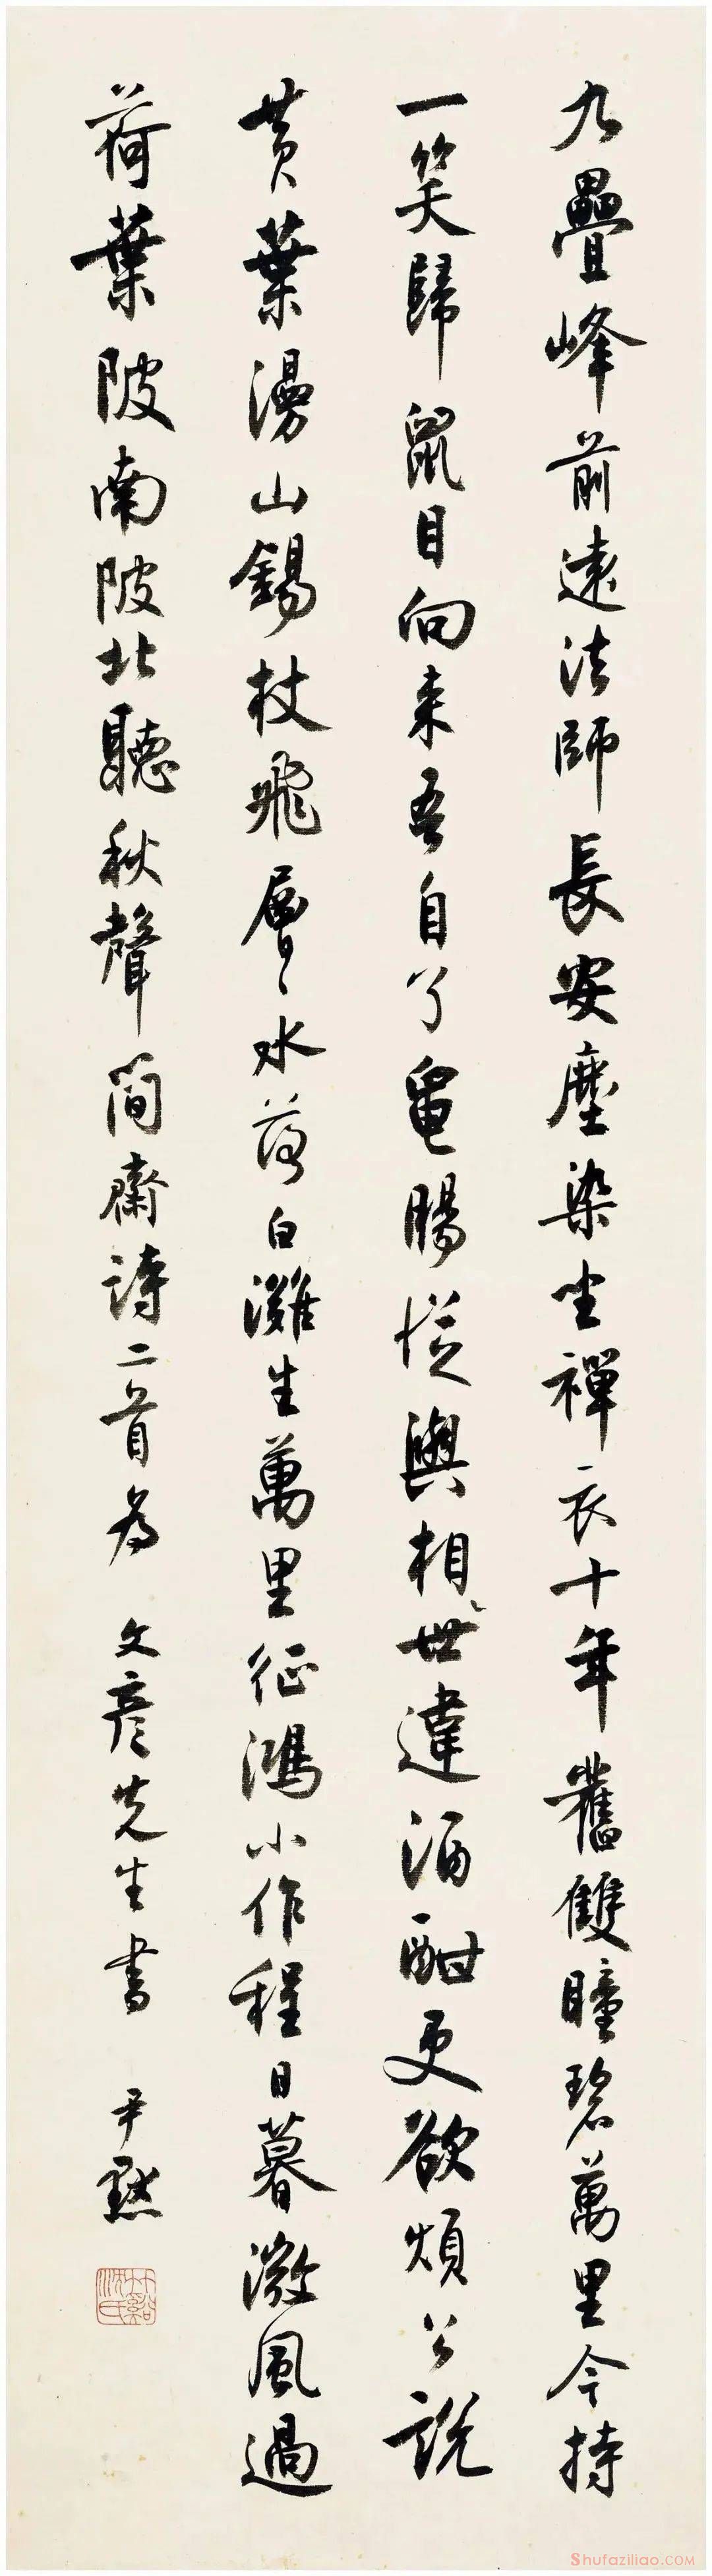 九疊峰前遠法師長安塵染坐禪衣十年舊雙瞳碧萬里今持
一笑歸鼠目向來吾自了龜腸從與相世違酒酣更欲煩公說
黃葉漫山錫杖飛層〻水落白灘生萬里征鴻小作程日暮微風過
荷葉陂南陂北聽秋聲簡齋詩二首為 文彥先生書 尹默
竹谿沈氏
Shufaziliao.COM